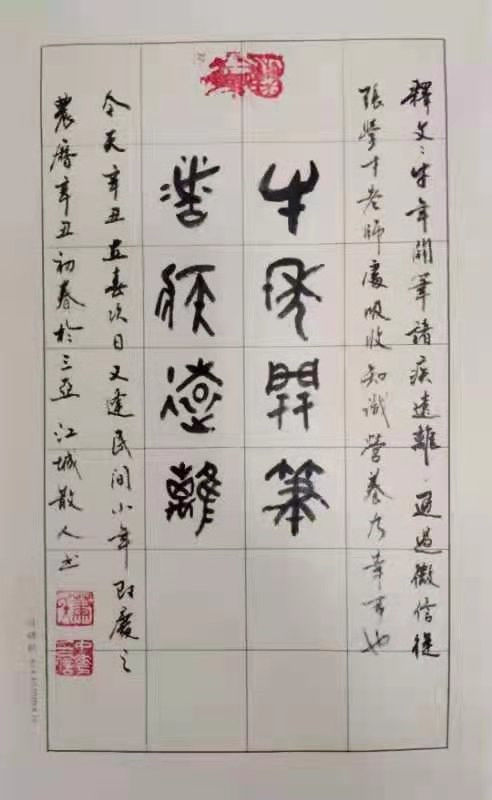 釋文：牛年開筆諸疾遠離。通過微信從
張學才老師處吸收知識營養乃幸事也
牛年開筆
諸疾遠離
今天辛丑立春次日又逢民間小年慶之
農曆辛丑初春於三亞 江城散人书